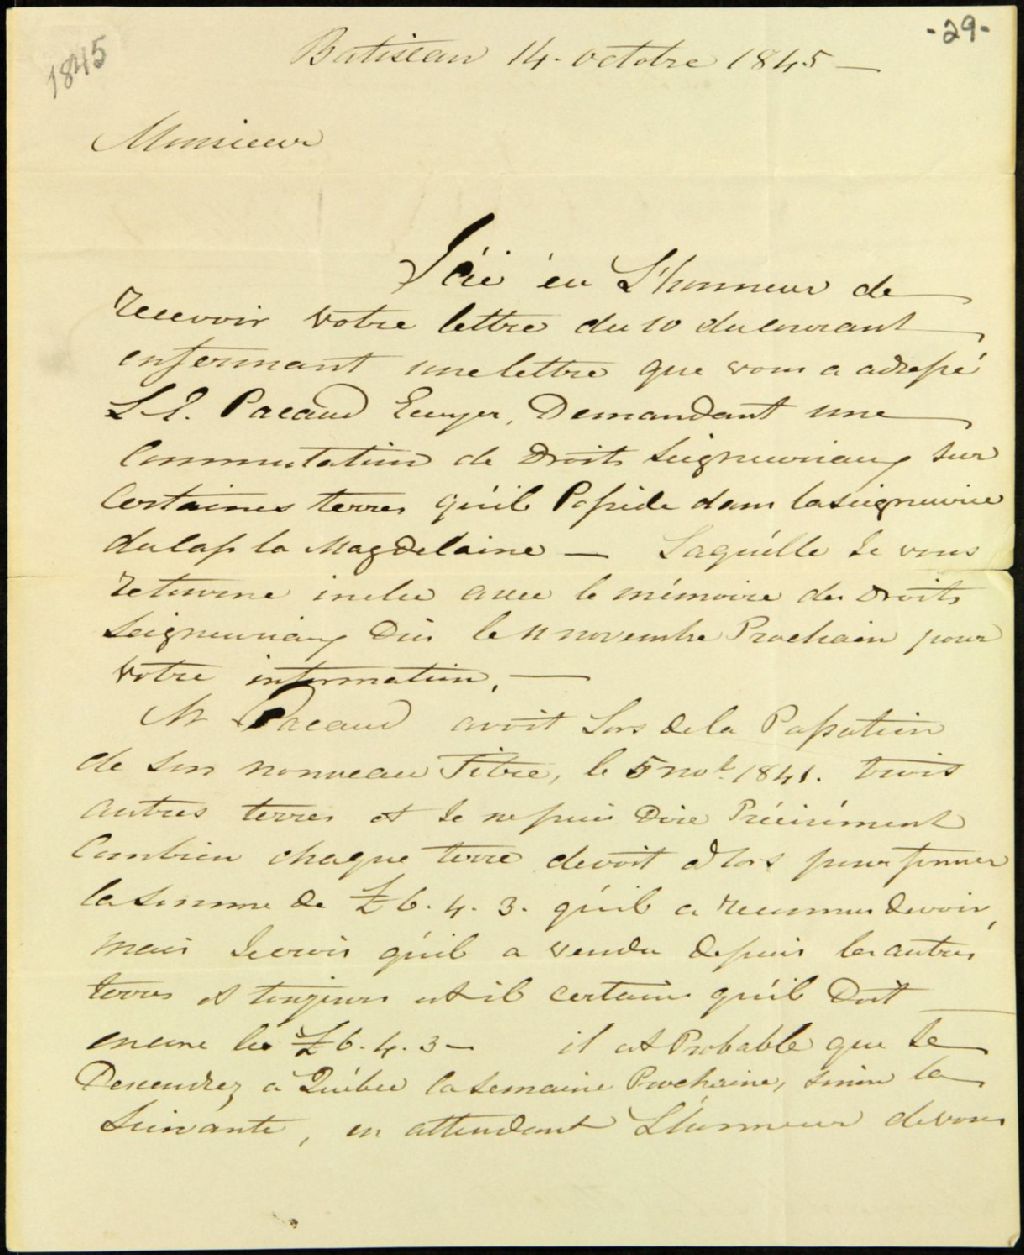 -29-
1845
Batiscan 14 - octobre 1845 —
Monsieur
J'ai éu L'honneur de
recevoir votre lettre du 10 du courant
enfermant une lettre que vous a adressé
Pacaud Ecuyer, Demandant une
Commutation de Droits Seigneuriaux sur
Certaines terres qu'il Posséde dans la seigneurie
du Cap la Magdelaine — Laquélle Je vous
retourne inclu avec le mémoire des Droits
Seigneuriaux Dûs le 11 novembre Prochain pour
votre information. —
Mr Pacaud avoit Lors de la Passation
de son nouveau Titre, le 5 nov. 1841. trois
autres terres et Je ne puis Dire Précisément
Combien chaque terre devoit alors pour former
la somme de £6.4.3. qu'il a reconnu devoir,
mais Je crois qu'il a vendu depuis les autres
terres et toujours est il certain qu'il Doit
encore les £6.4.3 — il est Probable que Je
Descendrez a Québec la semaine Prochaine, sinon la
Suivante, en attendant L'honneur de vous